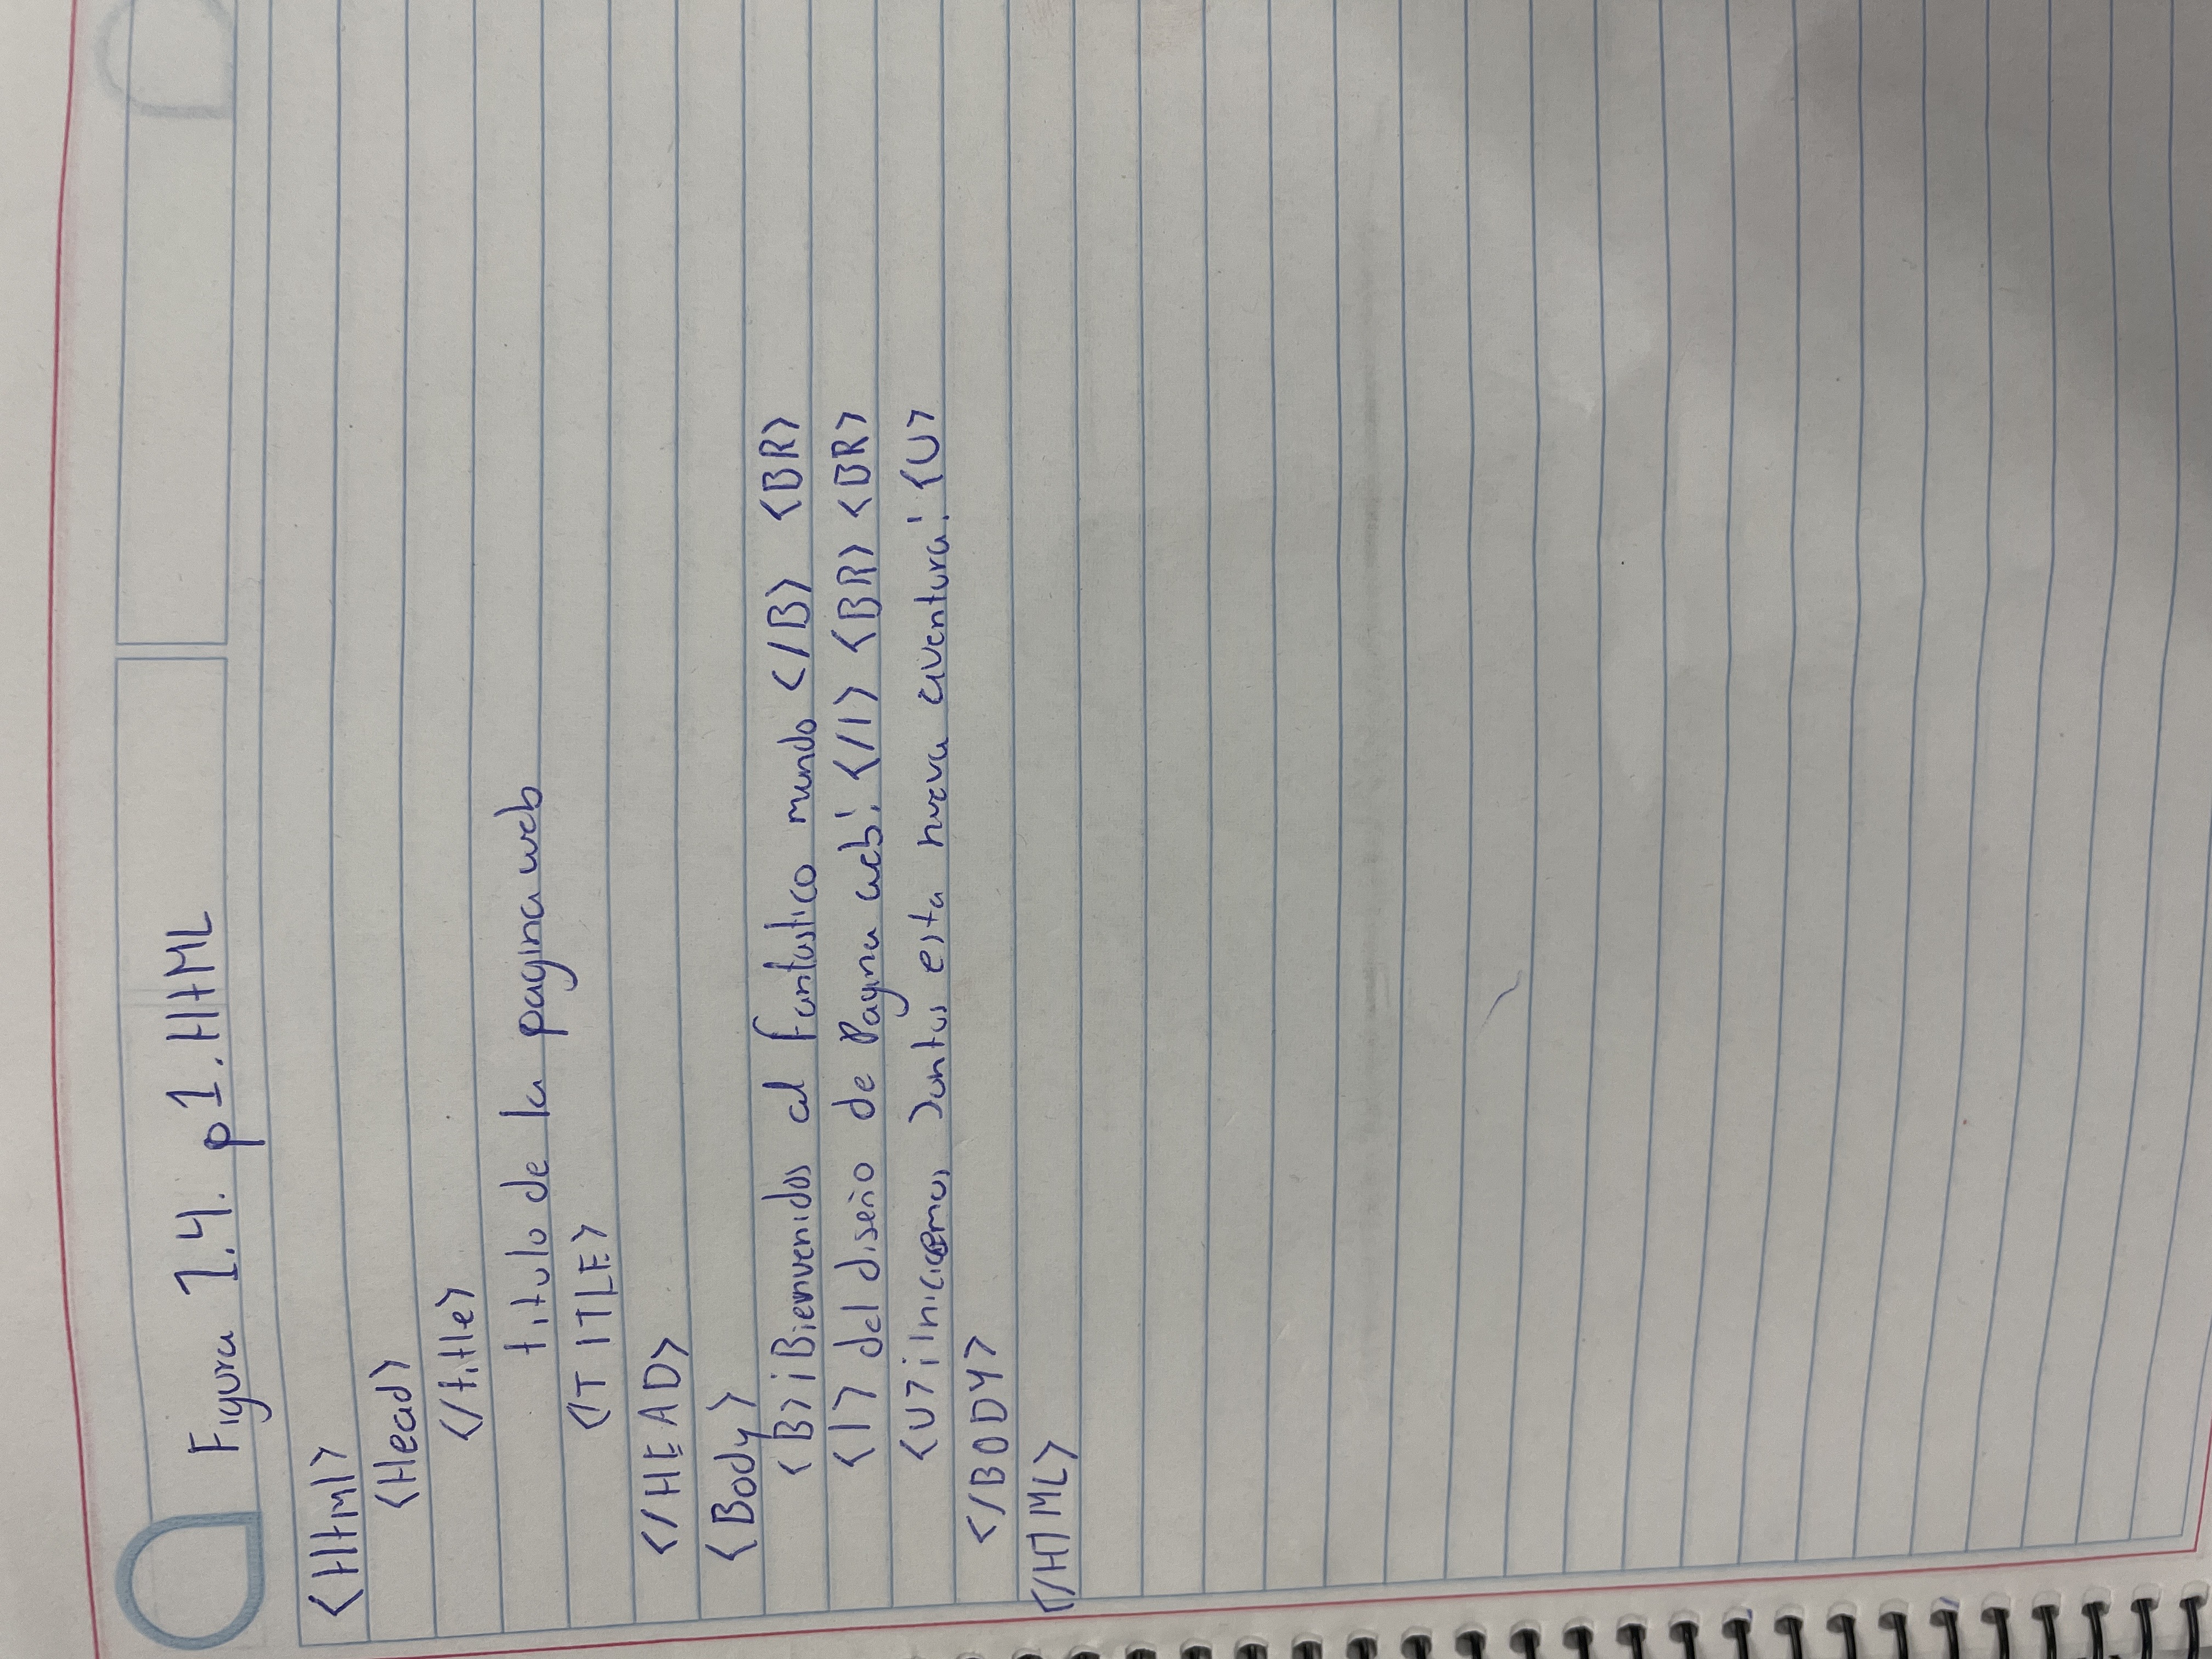 Figura 1.4. p1.HtML
<Html>
<Head>
</title>
titulo de la pagina web
</TITLE>
</HEAD>
<Body>
<B>¡Bienvenidos al fantastico mundo </B> <BR>
<I> del diseño de Pagina web! </I> <BR> <BR>
<U>¡Iniciemos Juntos esta nueva aventura! <U>
</BODY>
</HTML>